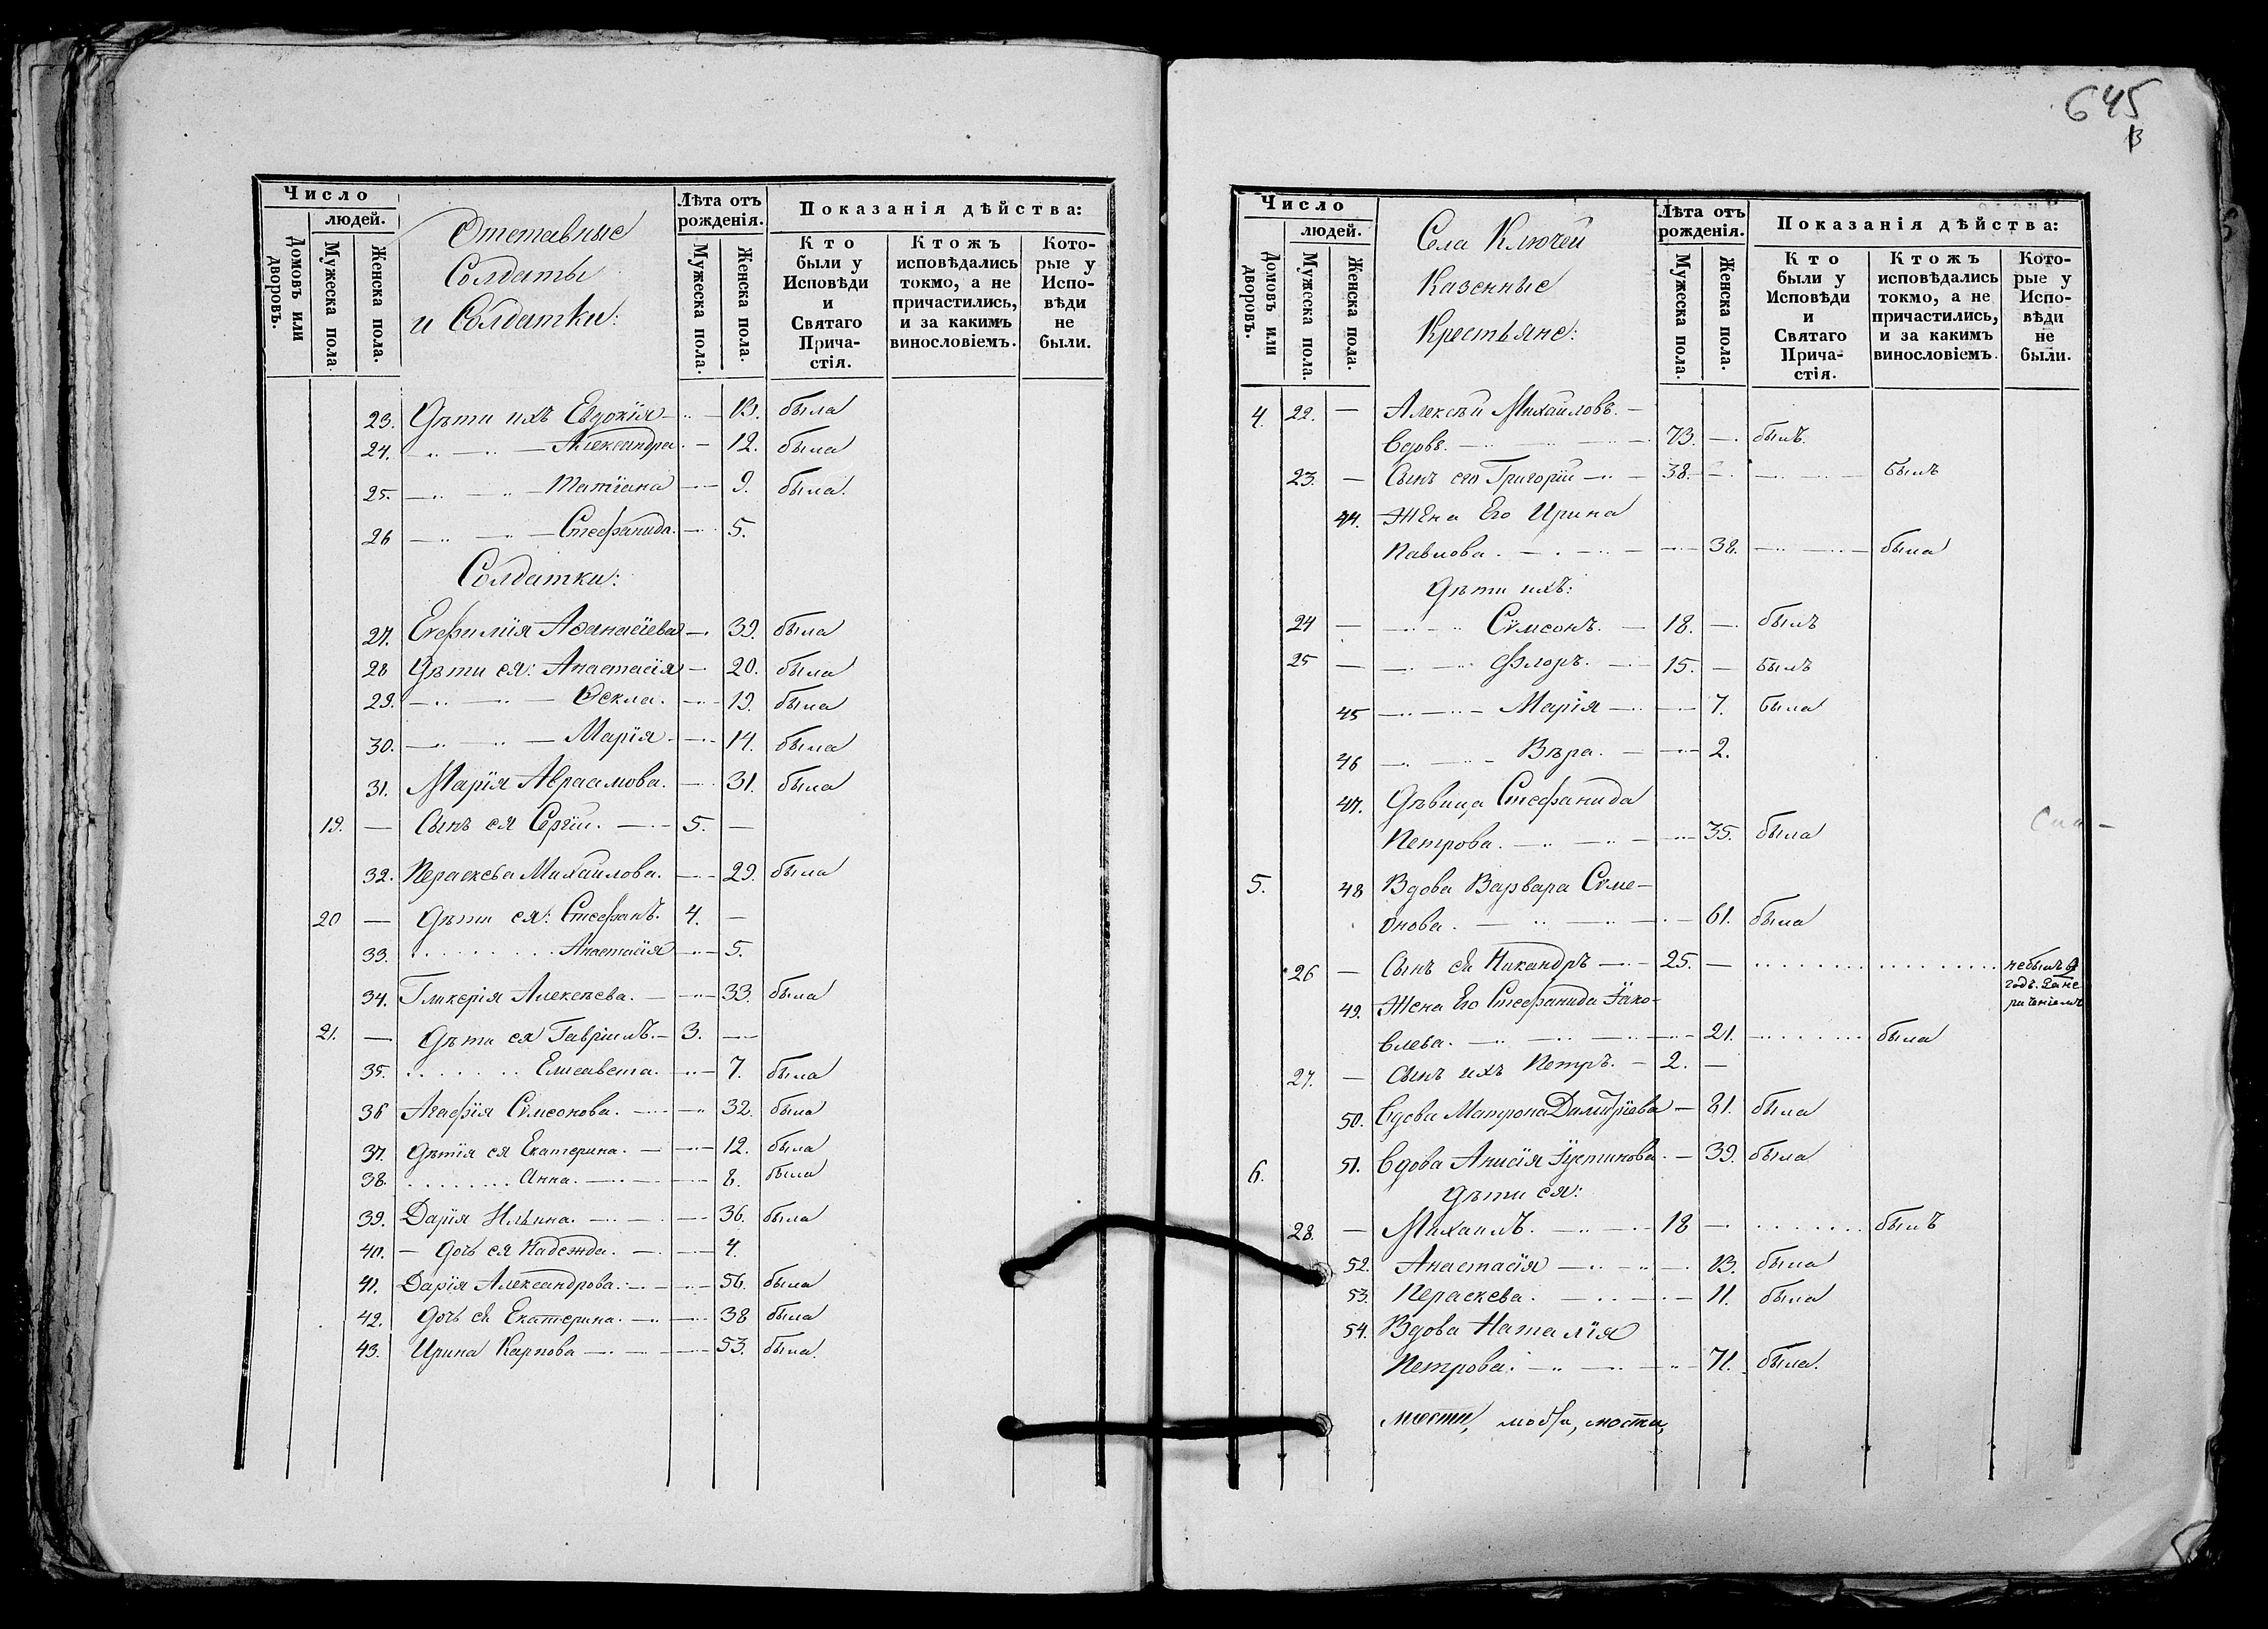 645
Число
людей.
Домовъ или дворовъ.
Мужеска пола
Женска пола.
Отставные
Солдаты
и Солдатки:
Лѣта отъ рожденія.
Мужеска пола.
Женска пола.
Показанія дѣйства:
Кто были у Исповѣди и Святаго Причастія.
Ктожъ исповѣдались токмо, а не причастились, и за какимъ винословіемъ.
Которые у Исповѣди не были.
23. Дѣти ихъ Евдокія 13. была
24. Александра 12. была
25. Татіана 9. была.
26 Стефанида 5.
Солдатки:
27. Евфимія Аѳанасіева 39. была
28 Дѣти ея: Анастасія 20. была
29. Ѳекла. 19. была
30. Марія 14. была
31. Марія Авраамова. 31. была
19. — Сынъ ея Сергій. 5. —
32. Параскева Михаилова. 29. была
20 — Дѣти ея: Стефанъ. 4. —
33. Анастасія 5.
34. Гликерія Алексѣева. 33. была
21. — Дѣти ея Гавріилъ. 3. —
35. Елисавета. 7. была
36 Агафія Сѵмеонова. 32. была
37. Дѣтія ея Екатерина. 12. была
38. Анна. 8. была
39. Дарія Ильина. 36. была
40. — Дочь ея Надежда. 4.
41. Дарія Александрова. 56. была
42. Дочь ея Екатерина. 38 была
43. Ирина Карпова 53. была.
Число
людей.
Домовъ или дворовъ.
Мужеска пола.
Женска пола.
Села Ключей
Казенные
Крестьяне:
Лѣта отъ рожденія.
Мужеска пола.
Женска пола.
Показанія дѣйства:
Кто были у Исповѣди и Святаго Причастія.
Ктожъ исповѣдались токмо, а не причастились, и за какимъ винословіемъ.
Которые у Исповѣди не были.
4. 22. — Алексѣй Михаиловъ.
Вдовъ. 73. — былъ.
23. — Сынъ его Григорій 38. — былъ
44. Жена Его Ирина
Павлова. 38. была
Дѣти ихъ:
24 — Сѵмеонъ. 18. — былъ
25 — Флоръ. 15. — былъ
45 Марія 7. была
46 Вѣра. 2.
47. Дѣвица Стефанида
Петрова. 35. была
5. 48 Вдова Варвара Сѵме-
онова. 61. была
26 — Сынъ ея Никандръ 25. — небылъ
49. Жена Его Стефанида Іако-
влева. 21. была
27. — Сынъ ихъ Петръ. 2. —
50. Вдова Матрона Димитріева 81. была
6. 51. Вдова Анисія Іустинова. 39. была
Дѣти ея:
28. — Михаилъ. 18 — былъ
52. Анастасія 13. была
53. Параскева. 11. была
54. Вдова Наталія
Петрова. 71. была.